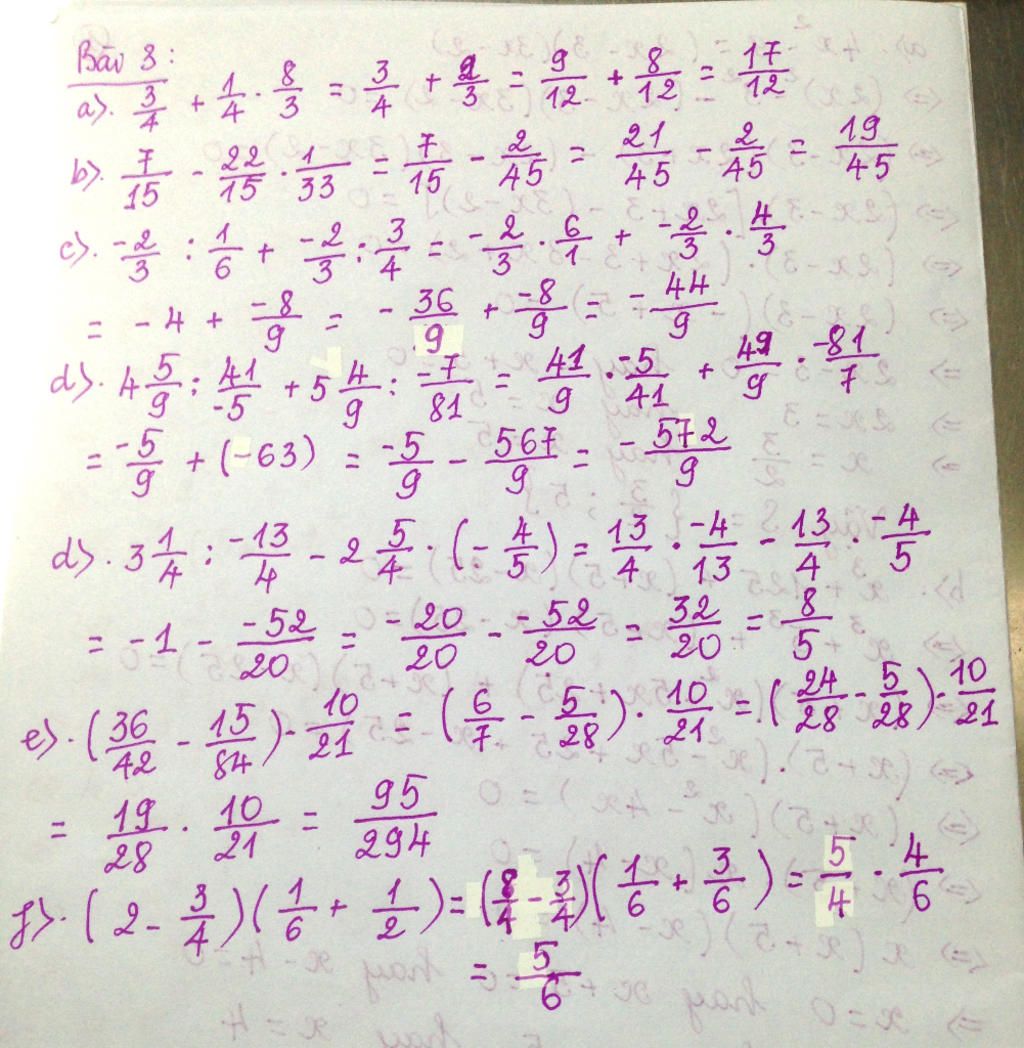 Bài 3:
a). 3/4 + 1/4 . 8/3 = 3/4 + 2/3 = 9/12 + 8/12 = 17/12
b). 7/15 - 22/15 . 1/33 = 7/15 - 2/45 = 21/45 - 2/45 = 19/45
c). -2/3 : 1/6 + -2/3 : 3/4 = -2/3 . 6/1 + -2/3 . 4/3
= -4 + -8/9 = -36/9 + -8/9 = -44/9
d). 4 5/9 : 41/-5 + 5 4/9 : -7/81 = 41/9 . -5/41 + 49/9 . -81/7
= -5/9 + (-63) = -5/9 - 567/9 = -572/9
d). 3 1/4 : -13/4 - 2 5/4 . (-4/5) = 13/4 . -4/13 - 13/4 . -4/5
= -1 - -52/20 = -20/20 - -52/20 = 32/20 = 8/5
e). (36/42 - 15/84) - 10/21 = (6/7 - 5/28) . 10/21 = (24/28 - 5/28) - 10/21
= 19/28 . 10/21 = 95/294
f). (2 - 3/4)(1/6 + 1/2) = (8/4 - 3/4)(1/6 + 3/6) = 5/4 . 4/6
= 5/6